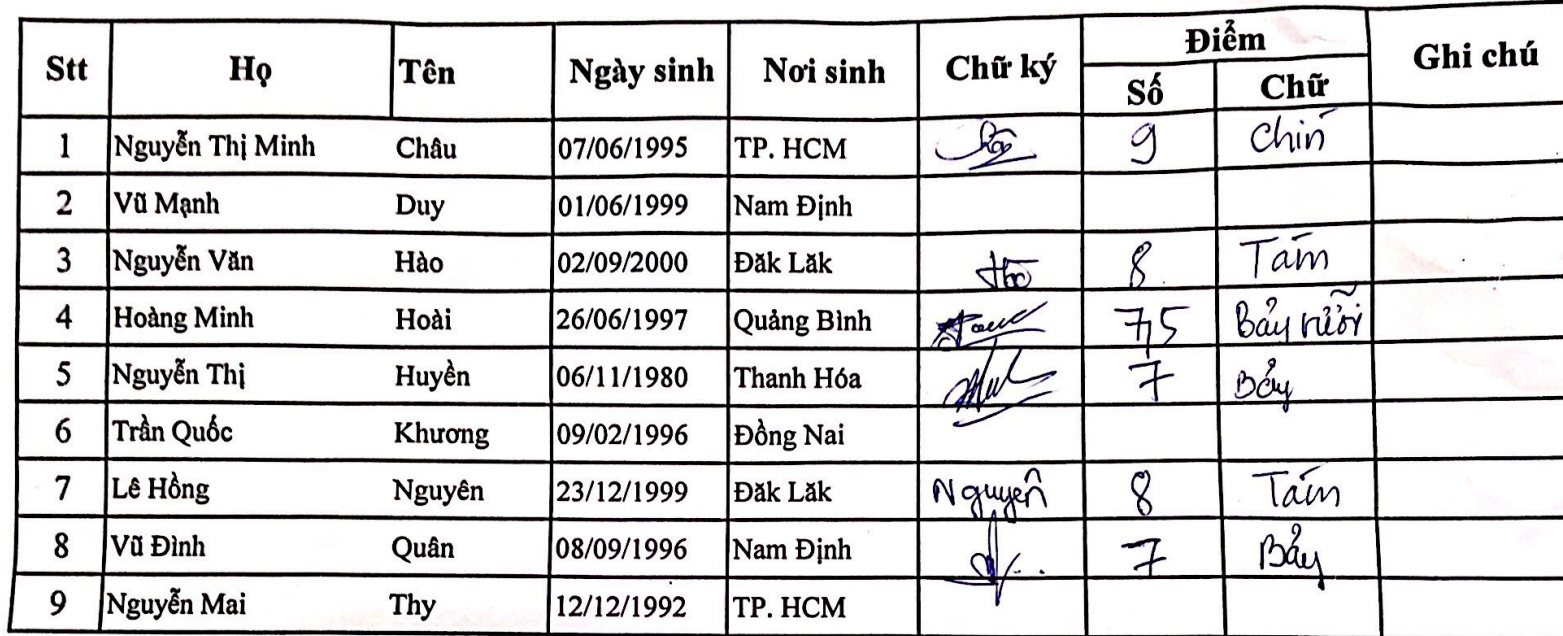 Stt Họ Tên Ngày sinh Nơi sinh Chữ ký Điểm Ghi chú
Số Chữ
1 Nguyễn Thị Minh Châu 07/06/1995 TP. HCM 9 Chín
2 Vũ Mạnh Duy 01/06/1999 Nam Định
3 Nguyễn Văn Hào 02/09/2000 Đăk Lăk 8 Tám
4 Hoàng Minh Hoài 26/06/1997 Quảng Bình 7,5 Bảy rưỡi
5 Nguyễn Thị Huyền 06/11/1980 Thanh Hóa 7 Bảy
6 Trần Quốc Khương 09/02/1996 Đồng Nai
7 Lê Hồng Nguyên 23/12/1999 Đăk Lăk Nguyên 8 Tám
8 Vũ Đình Quân 08/09/1996 Nam Định 7 Bảy
9 Nguyễn Mai Thy 12/12/1992 TP. HCM